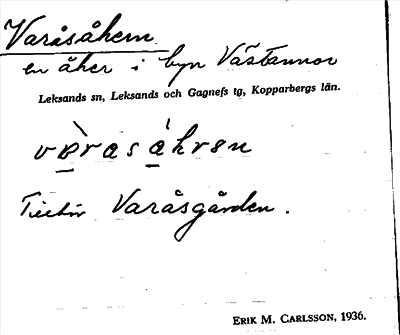 Varåsåkern.
en åker i byn Västannor
Leksands sn, Leksands och Gagnefs tg, Kopparbergs län.
værasåkren
Tillhör Varåsgården.
ERIK M. CARLSSON, 1936.